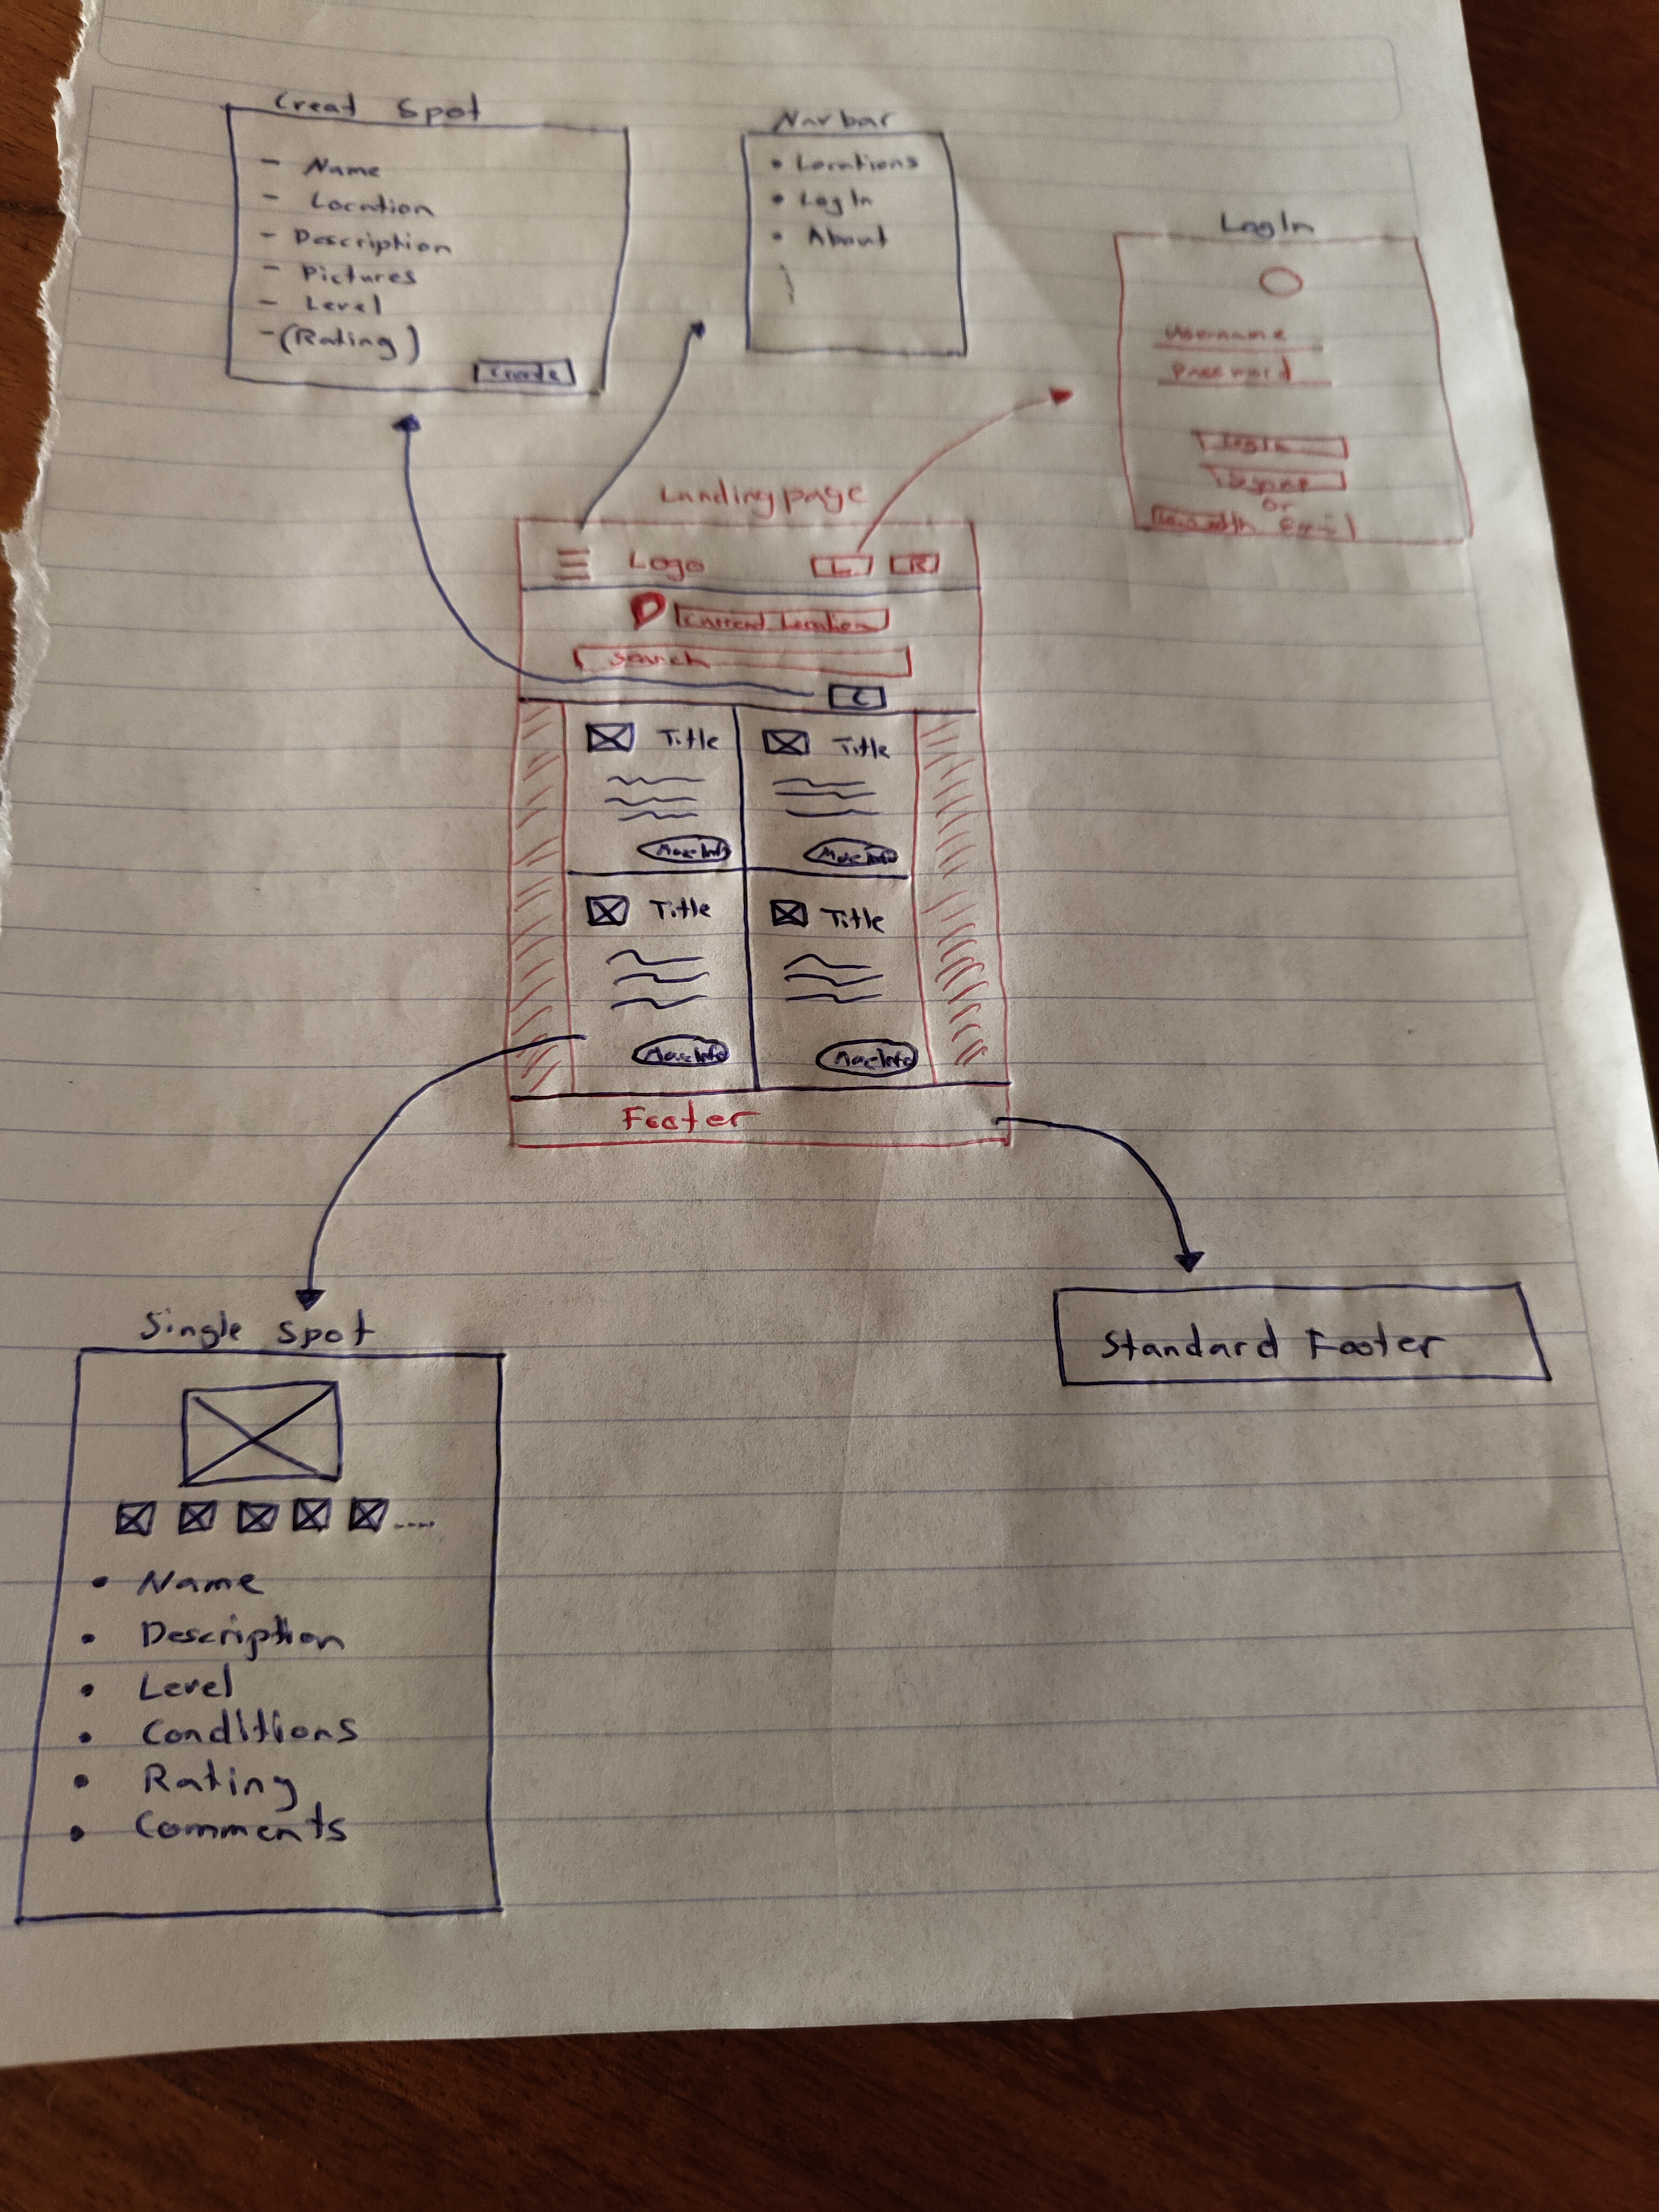 Creat Spot
- Name
- Location
- Description
- Pictures
- Level
- (Rating)
Create
Navbar
• Locations
• LogIn
• About
LogIn
Username
Password
Login
Signup
or
Landingpage
Logo
L
R
Current Location
Search
C
Title
More Info
Title
More Info
Title
More Info
Title
More Info
Footer
Single Spot
• Name
• Description
• Level
• Conditions
• Rating
• Comments
Standard Footer